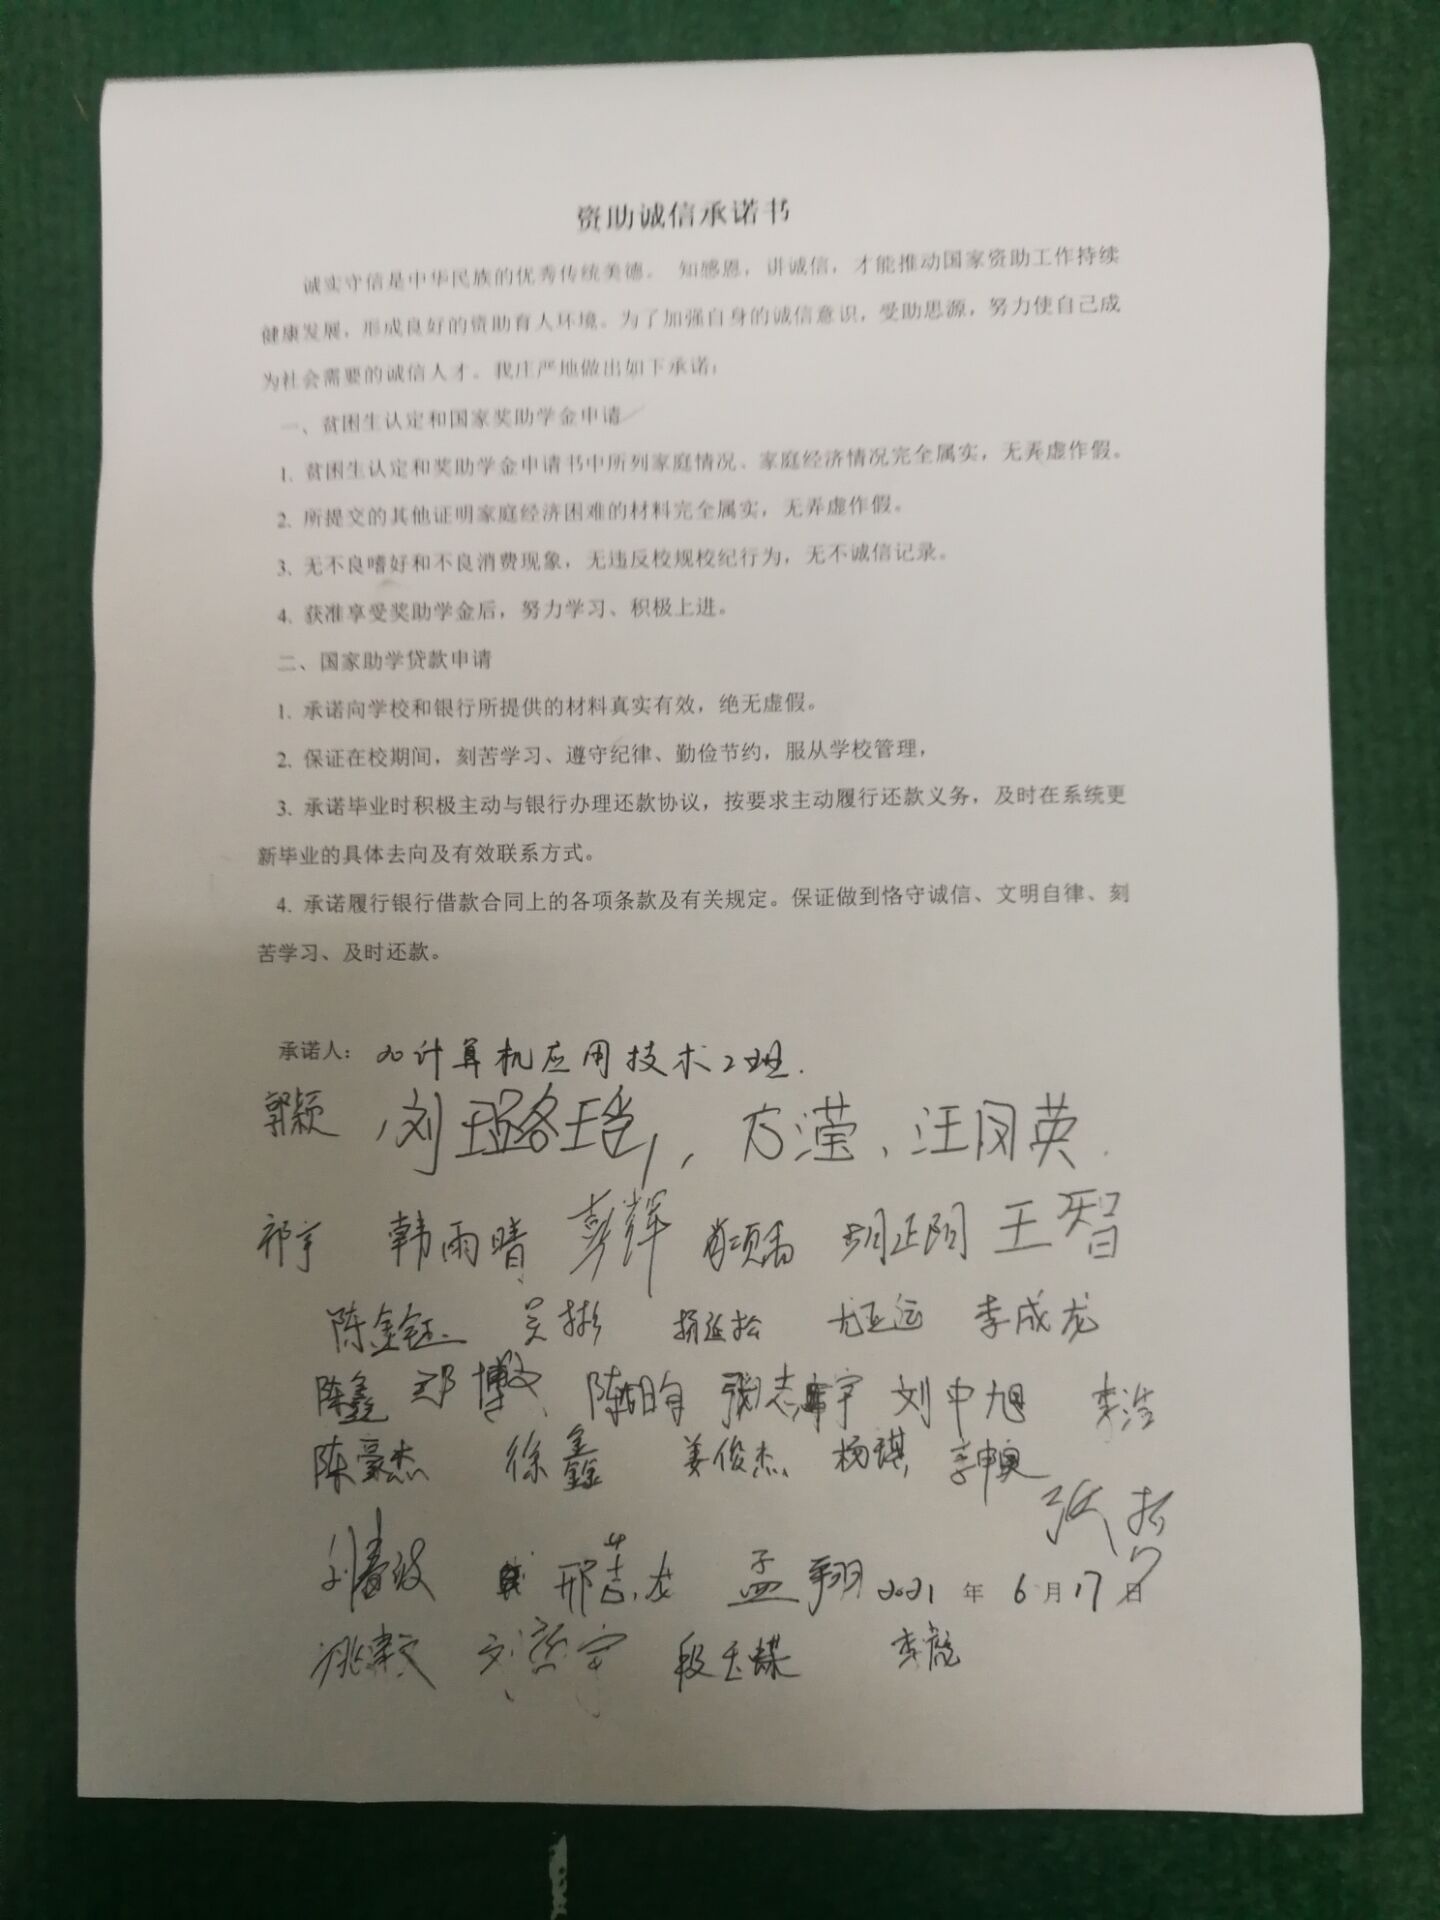 资助诚信承诺书
诚实守信是中华民族的优秀传统美德。 知感恩，讲诚信，才能推动国家资助工作持续
健康发展，形成良好的资助育人环境。为了加强自身的诚信意识，受助思源，努力使自己成
为社会需要的诚信人才。我庄严地做出如下承诺：
一、贫困生认定和国家奖助学金申请
1. 贫困生认定和奖助学金申请书中所列家庭情况、家庭经济情况完全属实，无弄虚作假。
2. 所提交的其他证明家庭经济困难的材料完全属实，无弄虚作假。
3. 无不良嗜好和不良消费现象，无违反校规校纪行为，无不诚信记录。
4. 获准享受奖助学金后，努力学习、积极上进。
二、国家助学贷款申请
1. 承诺向学校和银行所提供的材料真实有效，绝无虚假。
2. 保证在校期间，刻苦学习、遵守纪律、勤俭节约，服从学校管理，
3. 承诺毕业时积极主动与银行办理还款协议，按要求主动履行还款义务，及时在系统更
新毕业的具体去向及有效联系方式。
4. 承诺履行银行借款合同上的各项条款及有关规定。保证做到恪守诚信、文明自律、刻
苦学习、及时还款。
承诺人：20计算机应用技术2班.
郭颖，刘璐瑶，方滢、汪凤英.
祁宇 韩雨晴 彭辉 胡正阳 王智
陈金钰 吴彬 尤亚运 李成龙
陈鑫 邓博文 张志宇 刘中旭 李浩
陈豪杰 徐鑫 姜俊杰 杨琪
张哲
孟翔 2021 年 6 月 17 日
段玉蝶 李彪